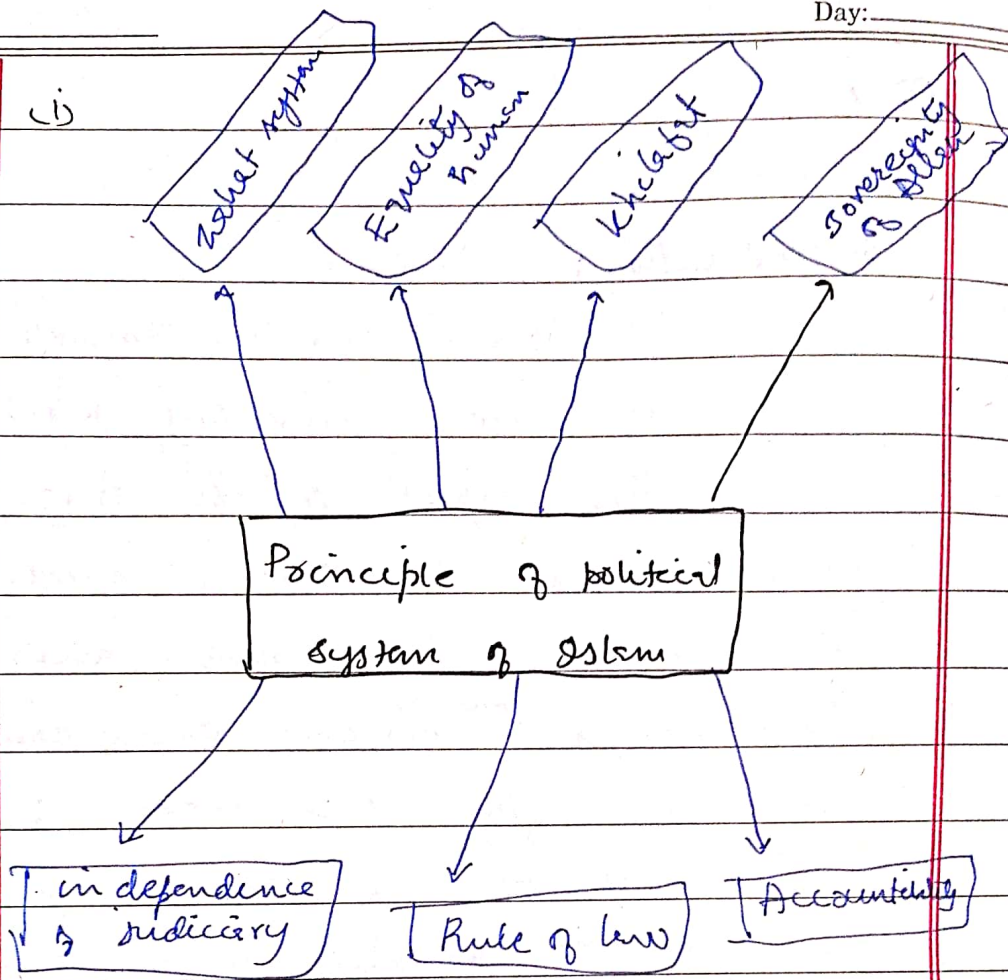 Day:
(i)
Zakat system
Equality of
human
Khilafat
Sovereignty
of Allah
Principle of political
system of Islam
independence
of judiciary
Rule of law
Accountability